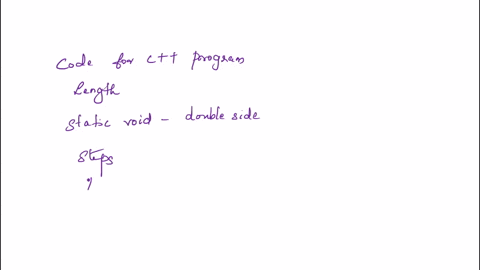 Code for C++ porogram
Length
Static void - double side
Steps